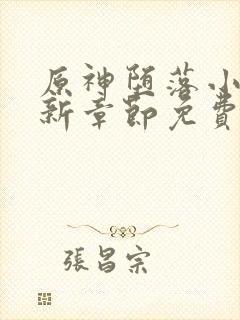 原神堕落小
新章節免費
張昌宗